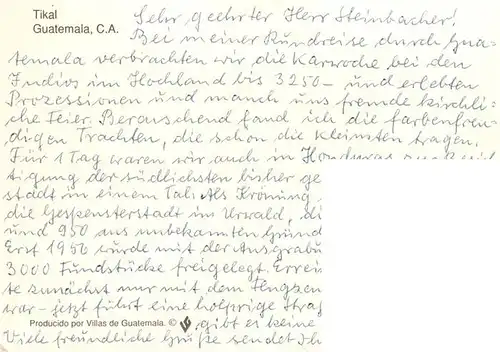 Tikal
Guatemala, C.A.
Sehr geehrter Herr Steinbacher!
Bei meiner Rundreise durch Gua-
temala verbrachten wir die Karwoche bei den
Indios im Hochland bis 3250.- und erlebten
Prozessionen und manch uns fremde kirchli-
che Feier. Berauschend fand ich die farbenfreu-
digen Trachten, die schon die Kleinsten tragen.
Für 1 Tag waren wir auch in Honduras
tigung der südlichsten bisher ge
stadt in einem Tal. Als Krönung
die Gespensterstadt im Urwald, di
und 950 aus unbekannten Gründ
Erst 1956 wurde mit der Ausgrabu
3000 Fundstücke freigelegt. Errei
te zunächst nur mit dem Flugzeu
war - jetzt führt eine holprige Straß
Producido por Villas de Guatemala. © gibt es keine
Viele freundliche Grüße sendet Ih